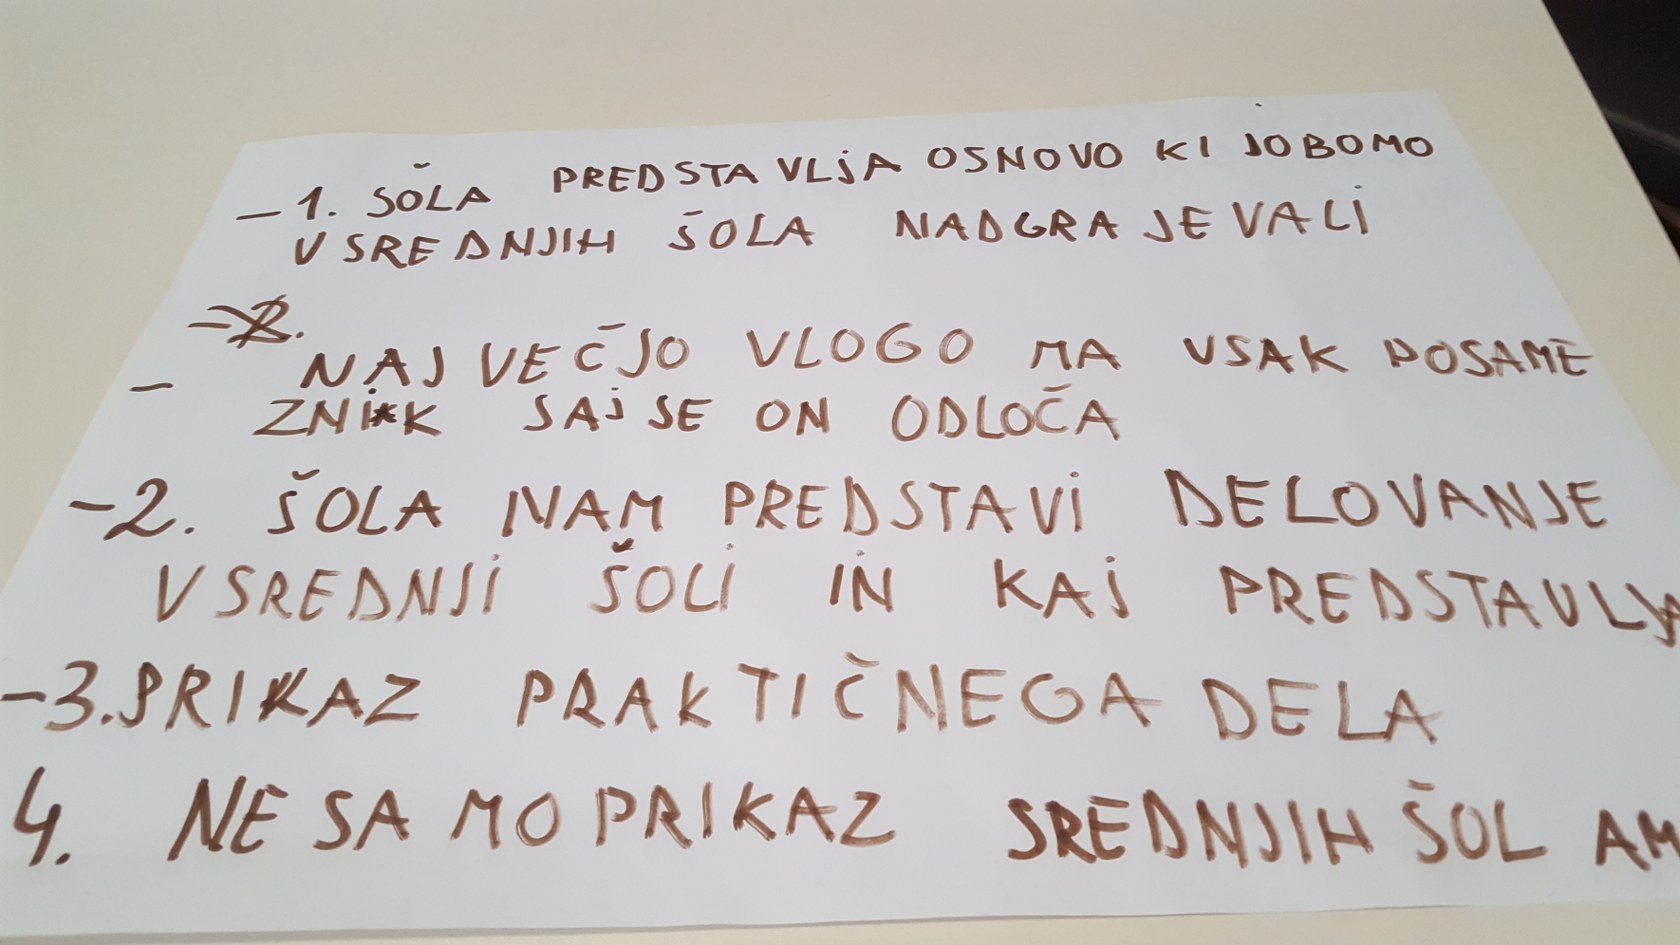 - 1. ŠOLA PREDSTAVLJA OSNOVO KI JO BOMO
V SREDNJIH ŠOLA NADGRAJEVALI
-
- NAJVEČJO VLOGO MA VSAK POSAME
ZNIK SAJ SE ON ODLOČA
-2. ŠOLA NAM PREDSTAVI DELOVANJE
V SREDNJI ŠOLI IN KAJ PREDSTAVLJA
-3. PRIKAZ PRAKTIČNEGA DELA
4. NE SAMO PRIKAZ SREDNJIH ŠOL